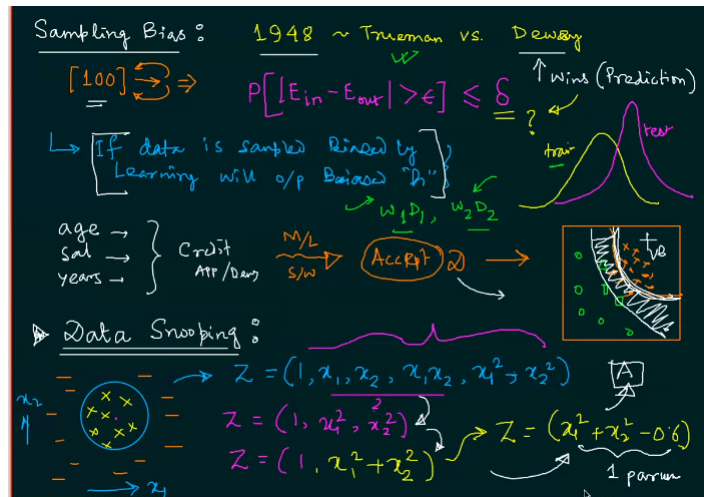 Sampling Bias :
1948 ~ Trueman vs. Dewey
[100] → ⇒
↑ wins (Prediction)
P[|Ein - Eout| > ϵ] ≤ δ
= ?
train
test
If data is sampled Biased by
Learning will o/p Baiased "h"
w1D1, w2D2
age →
sal →
years →
Credit
App/Deny
M/L
S/W
Accept D →
+ve
Data Snooping :
x2
x1
Z = (1, x1, x2, x1x2, x1², x2²)
Z = (1, x1², x2²)
Z = (1, x1² + x2²)
Z = (x1² + x2² - 0.6)
A
1 param